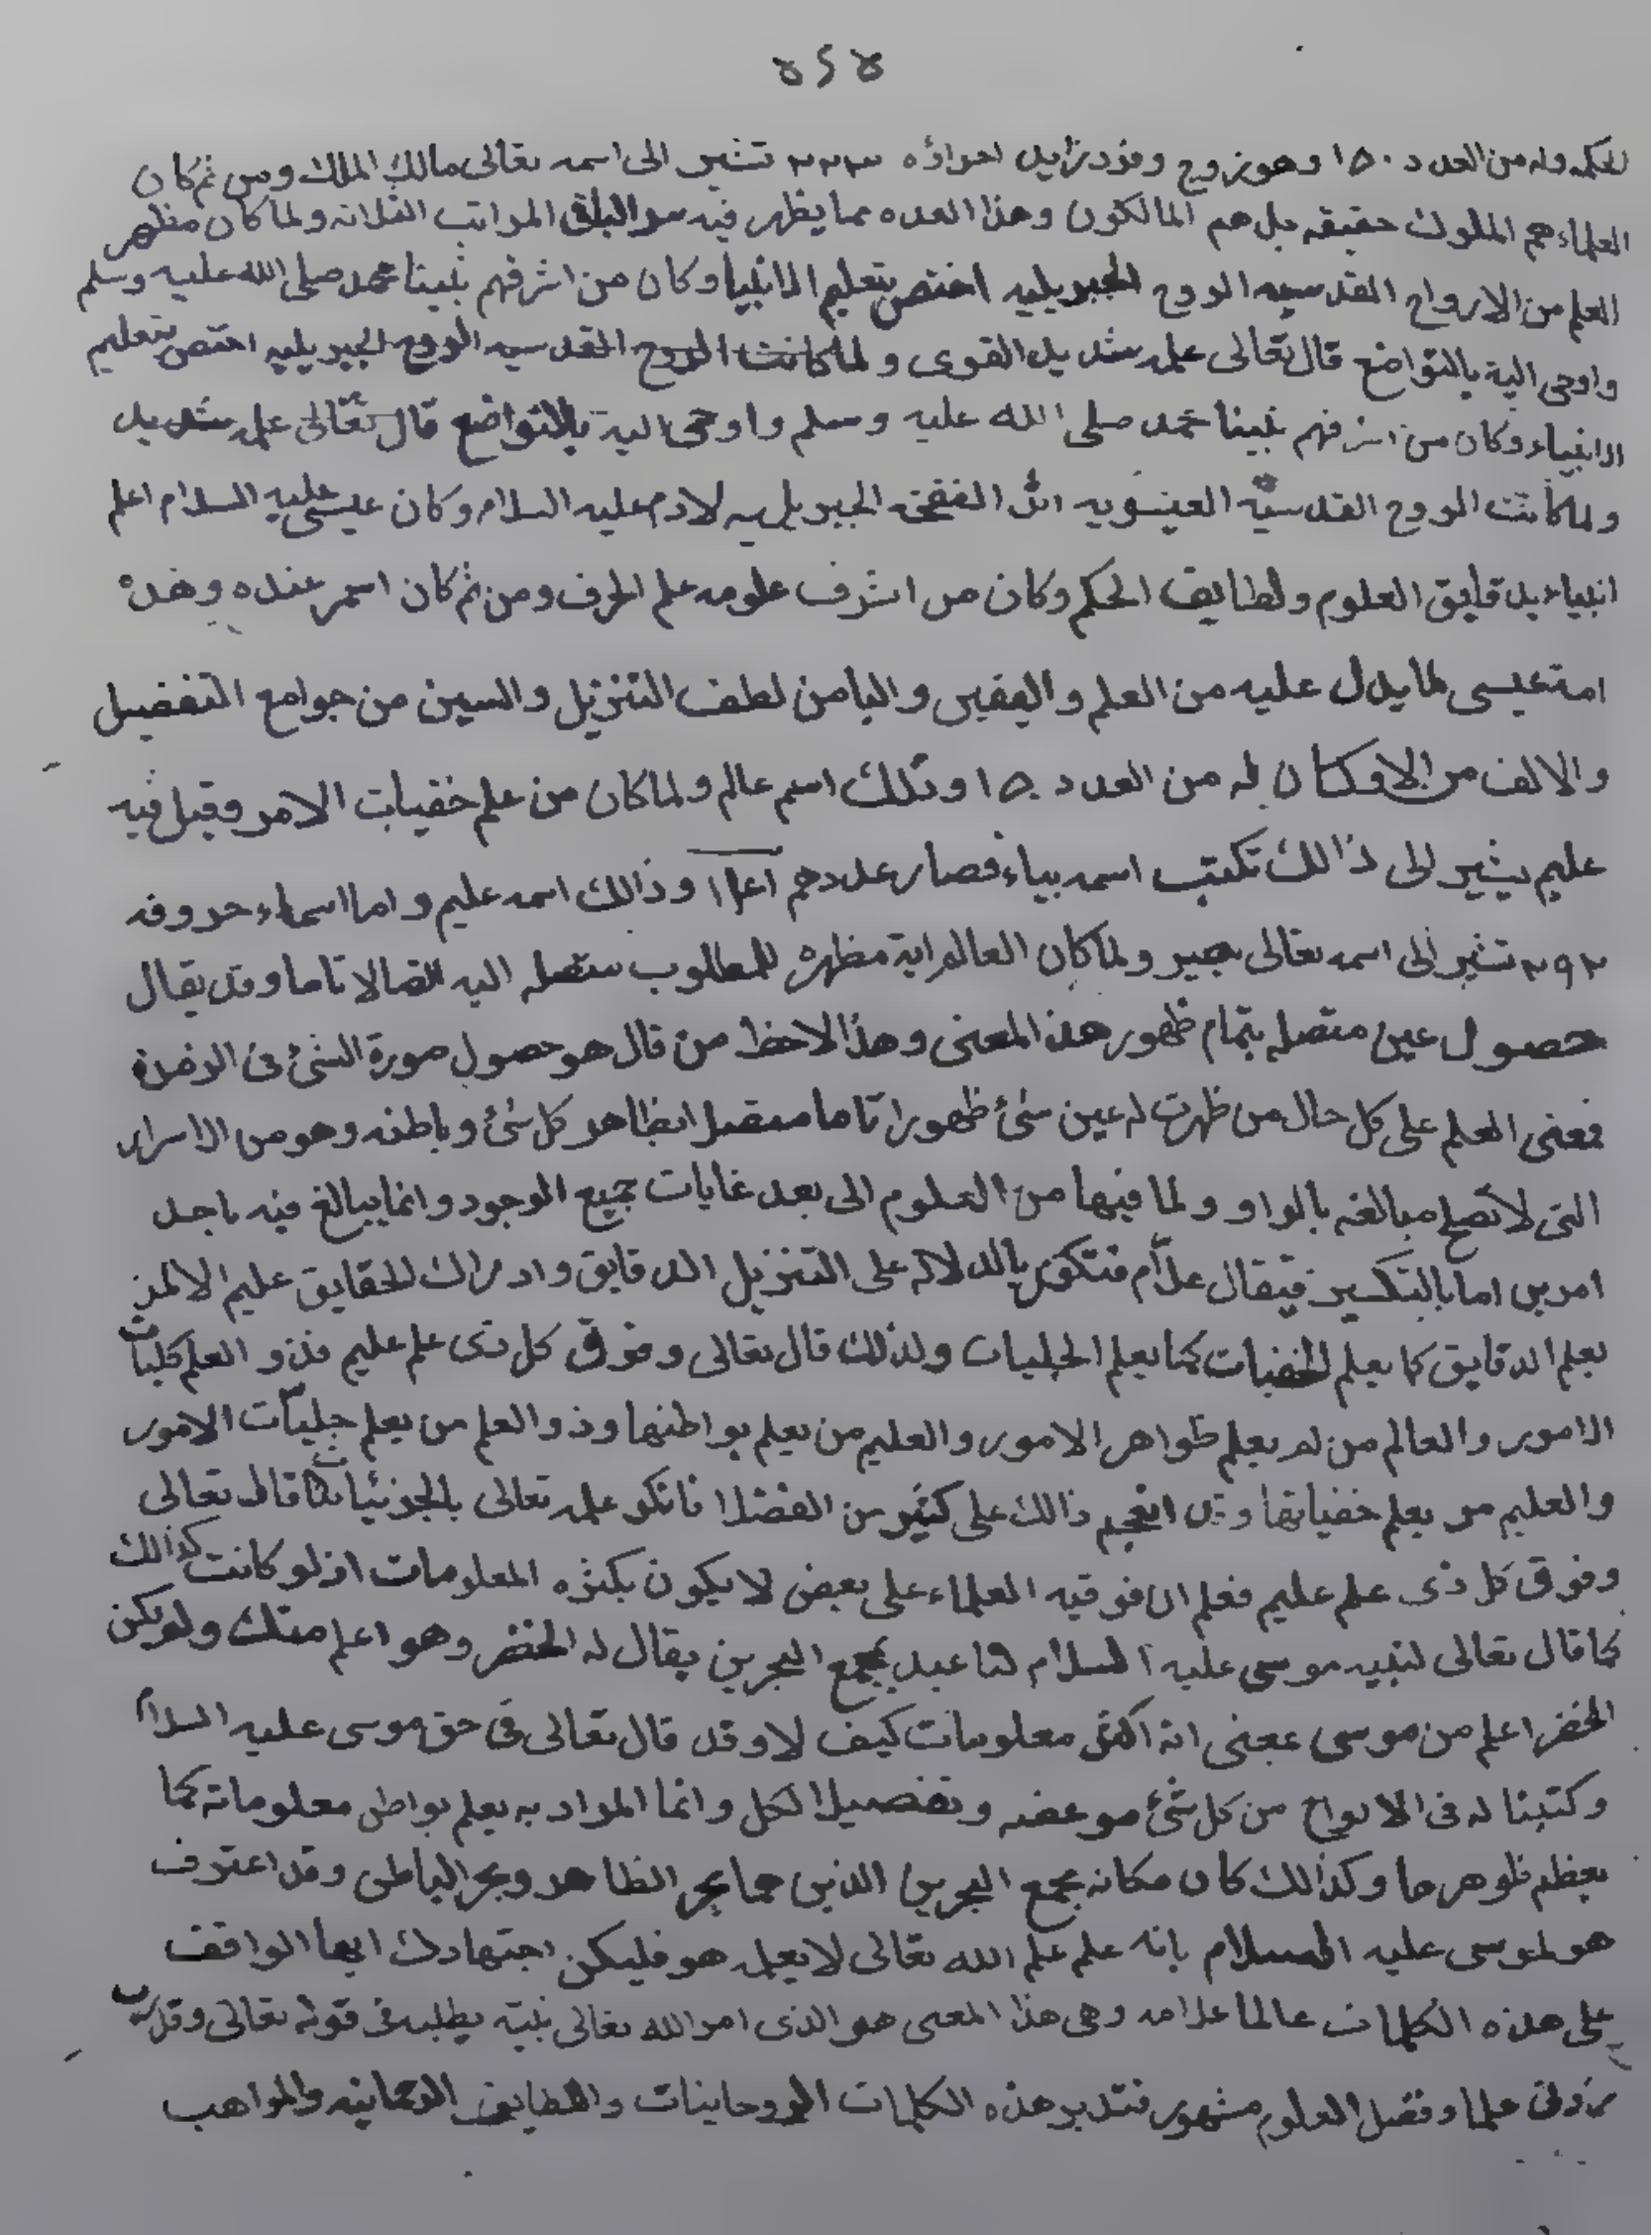 ٥٢٥
للحكمه وله من العدد ١٥٠ وهو زوج وفرد زايد اجزاؤه ٢٢٢ تشير الى اسمه تعالى مالك الملك ومن ثم كان
العلماء هم الملوك حقيقه بل هم المالكون وهذا العدد مما يظهر فيه سر الباقى المراتب الثلاثه ولما كان مظهر
العلم من الارواح القدسيه الروح الجبريليه اختص بتعليم الانبيا وكان من اشرفهم نبينا محمد صلى الله عليه وسلم
واوحى اليه بالتواضع قال تعالى علمه شديد القوى ولما كانت الروح القدسيه الروح الجبريليه اختص بتعليم
الانبياء وكان من اشرفهم نبينا محمد صلى الله عليه وسلم واوحى اليه بالتواضع قال تعالى علمه شديد
ولما كانت الروح القدسيه العيسويه النفخه الجبريليه لادم عليه السلام وكان عيسى عليه السلام اعلم
انبياء بدقايق العلوم ولطايف الحكم وكان من اشرف علومه علم الحرف ومن ثم كان اسمر عنده وهذه
امة عيسى لما يدل عليه من العلم واليقين واليا من لطف التنزيل والسين من جوامع التفضيل
والالف من له من العدد ١٥٠ وتلك اسم عالم ولما كان من علم خفيات الامر وقيل فيه
عليم يشير الى ذالك تكتب اسمه بياء فصار عددهم وذالك اسمه عليم واما اسماء حروفه
٢٩٢ تشير الى اسمه تعالى بصير ولما كان العالم اية مظهره للمطلوب متصله اليه اتصالا تاما وقد يقال
حصول عين متصله بتمام ظهور هذا المعنى وهذا لاحظ من قال هو حصول صورة الشئ فى الذهن
فمعنى العلم على كل حال من ظهرت له عين شئ ظهورا تاما متصلا بظاهر كل شئ وباطنه وهو من الاسرار
التى لا تصلح مبالغه بالواو ولما فيها من العلوم الى بعد غايات جميع الوجود وانما يبالغ فيه باحد
امرين اما بالتكسير فيقال علّام فتكون بالدلاله على التنزيل الدقايق وادراك الحقايق عليم الالذ
يعلم الدقايق كما يعلم الخفيات كما يعلم الجليات ولذلك قال تعالى وفوق كل ذى علم عليم فذو العلم كليات
الامور والعالم من لم يعلم ظواهر الامور والعليم من يعلم بواطنها وذو العلم من يعلم جليات الامور
والعليم من يعلم خفياتها ذالك على كثير من الفضلا فانكو علمه تعالى بالجزئيات كما قال تعالى
وفوق كل ذى علم عليم فعلم ان فوقيه العلماء على بعض لا يكون بكثره المعلومات اذ لو كانت كذالك
كما قال تعالى لنبيه موسى عليه السلام لنا عبد بمجمع البحرين يقال له الخضر وهو اعلم منك ولم يكن
الخضر اعلم من موسى بمعنى انه اكثر معلومات كيف لا وقد قال تعالى فى حق موسى عليه السلام
وكتبنا له فى الالواح من كل شئ موعضه وتفصيلا لكل وانما المراد به يعلم بواطن معلوماته كما
يعظم ظوهرها وكذالك كان مكانه مجمع البحرين الذين هما بحر الظاهر وبحر الباطن وقد اعترف
هو لموسى عليه السلام بانه علم علم الله تعالى لا يعلمه هو فليكن اجتهادك ايها الواقف
على هذه الكلمات عالما علامه وهى هذا المعنى هو الذى امر الله تعالى نبيه يطلبه فى قوله تعالى وقل رب
زدنى علما وفضل العلوم مشهور فتدبر هذه الكلمات الروحانيات واللطايف الرحمانيه والمواهب